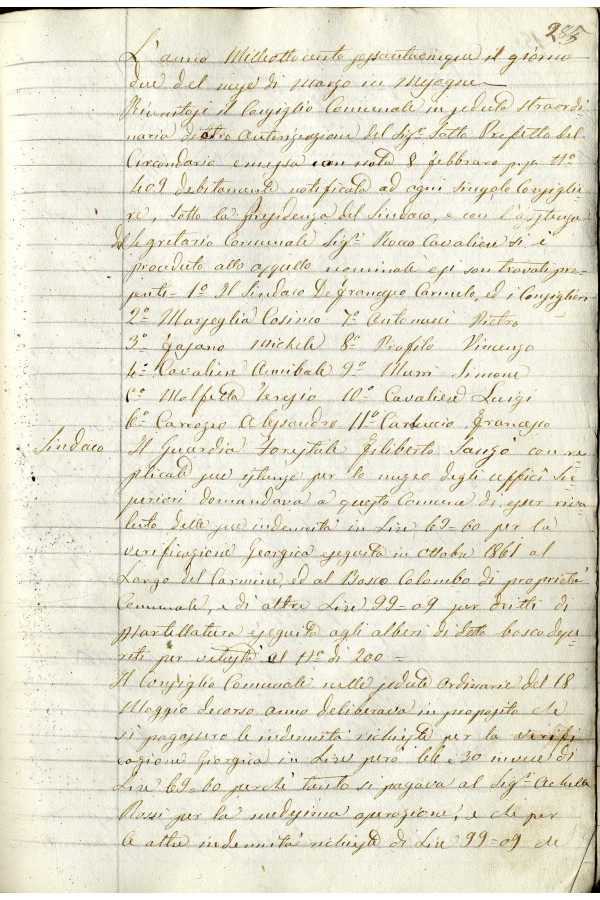 285
L'anno Milleottocento sessantacinque il giorno
due del mese di Marzo in Mesagne
Riunitosi il Consiglio Comunale in seduta straordi-
naria dietro autorizzazione del Sig.r Sotto Prefetto del
Circondario emessa con nota 8 febbraro p.p. N.o
409 debitamente notificata ad ogni singolo Consiglie-
re, sotto la Presidenza del Sindaco, e con l'assistenza
del Segretario Comunale Sig.r Rocco Cavaliere si è
proceduto allo appello nominale e si son trovati pre-
senti = 1.o Il Sindaco De Francesco Carmelo, ed i Consiglieri
2.o Marseglia Cosimo 7.o Antonucci Pietro
3.o Gajano Michele 8.o Profilo Vincenzo
4.o Cavaliere Annibale 9.o Murri Simone
5.o Molfetta Teresio 10.o Cavaliere Luigi
6.o Carrozzo Alessandro 11.o Carluccio Francesco
Sindaco
Il Guardia Forestale Filiberto Sangò con re-
plicate sue istanze per lo mezzo degli uffici Su-
periori domandava a questo Comune di esser riva-
luto delle sue indennità in Lire 69=60 per la
verificazione Georgica eseguita in ottobre 1861 al
Largo del Carmine, ed al Bosco Colombo di proprietà
Comunale, e di altre Lire 99=09 per dritti di
martellatura eseguita agli alberi di detto bosco depe-
riti per vetustà al N.o di 200 =
Il Consiglio Comunale nelle sedute ordinarie del 18
Maggio decorso anno deliberava in proposito che
si pagassero le indennità richieste per la verifi-
cazione Georgica in Lire però 66 e 30 invece di
Lire 69=60 perchè tanto si pagava al Sig.r Achille
Rossi per la medesima operazione, e che per
le altre indennità richieste di Lire 99=09 de